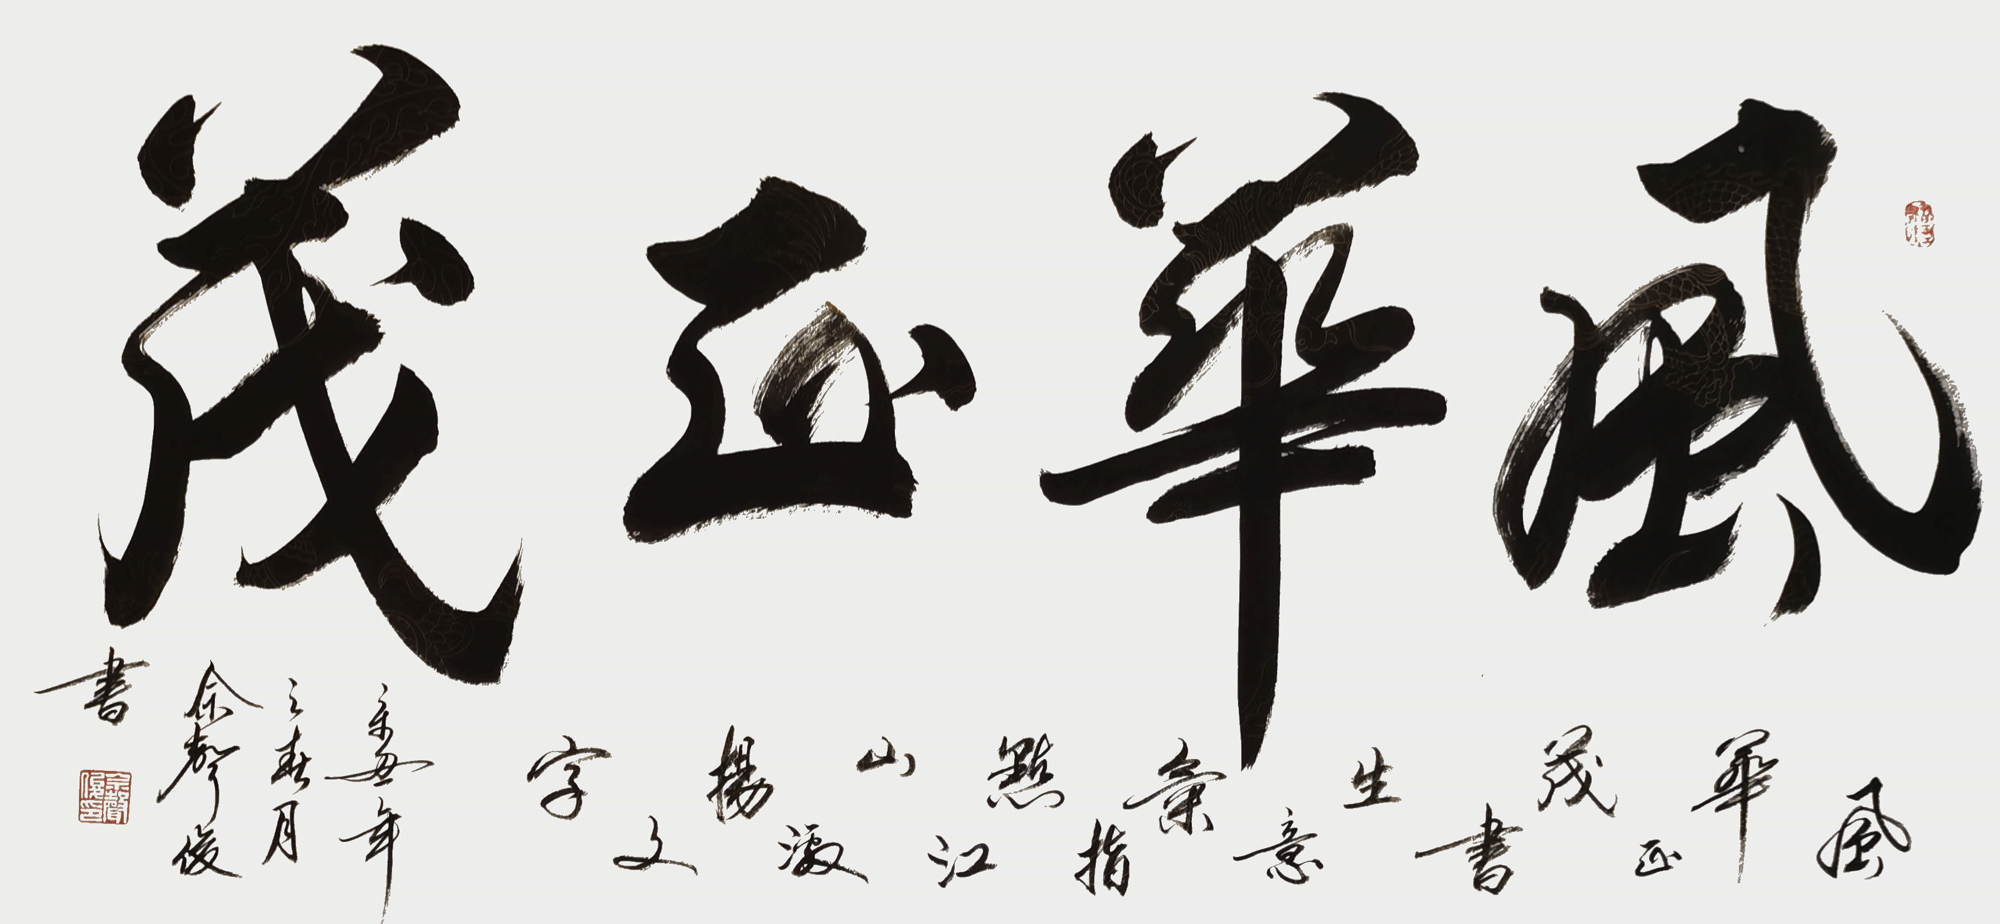 風華正茂
風華正茂書生意氣指點江山激揚文字
辛丑年
之春月
余聲俊
書